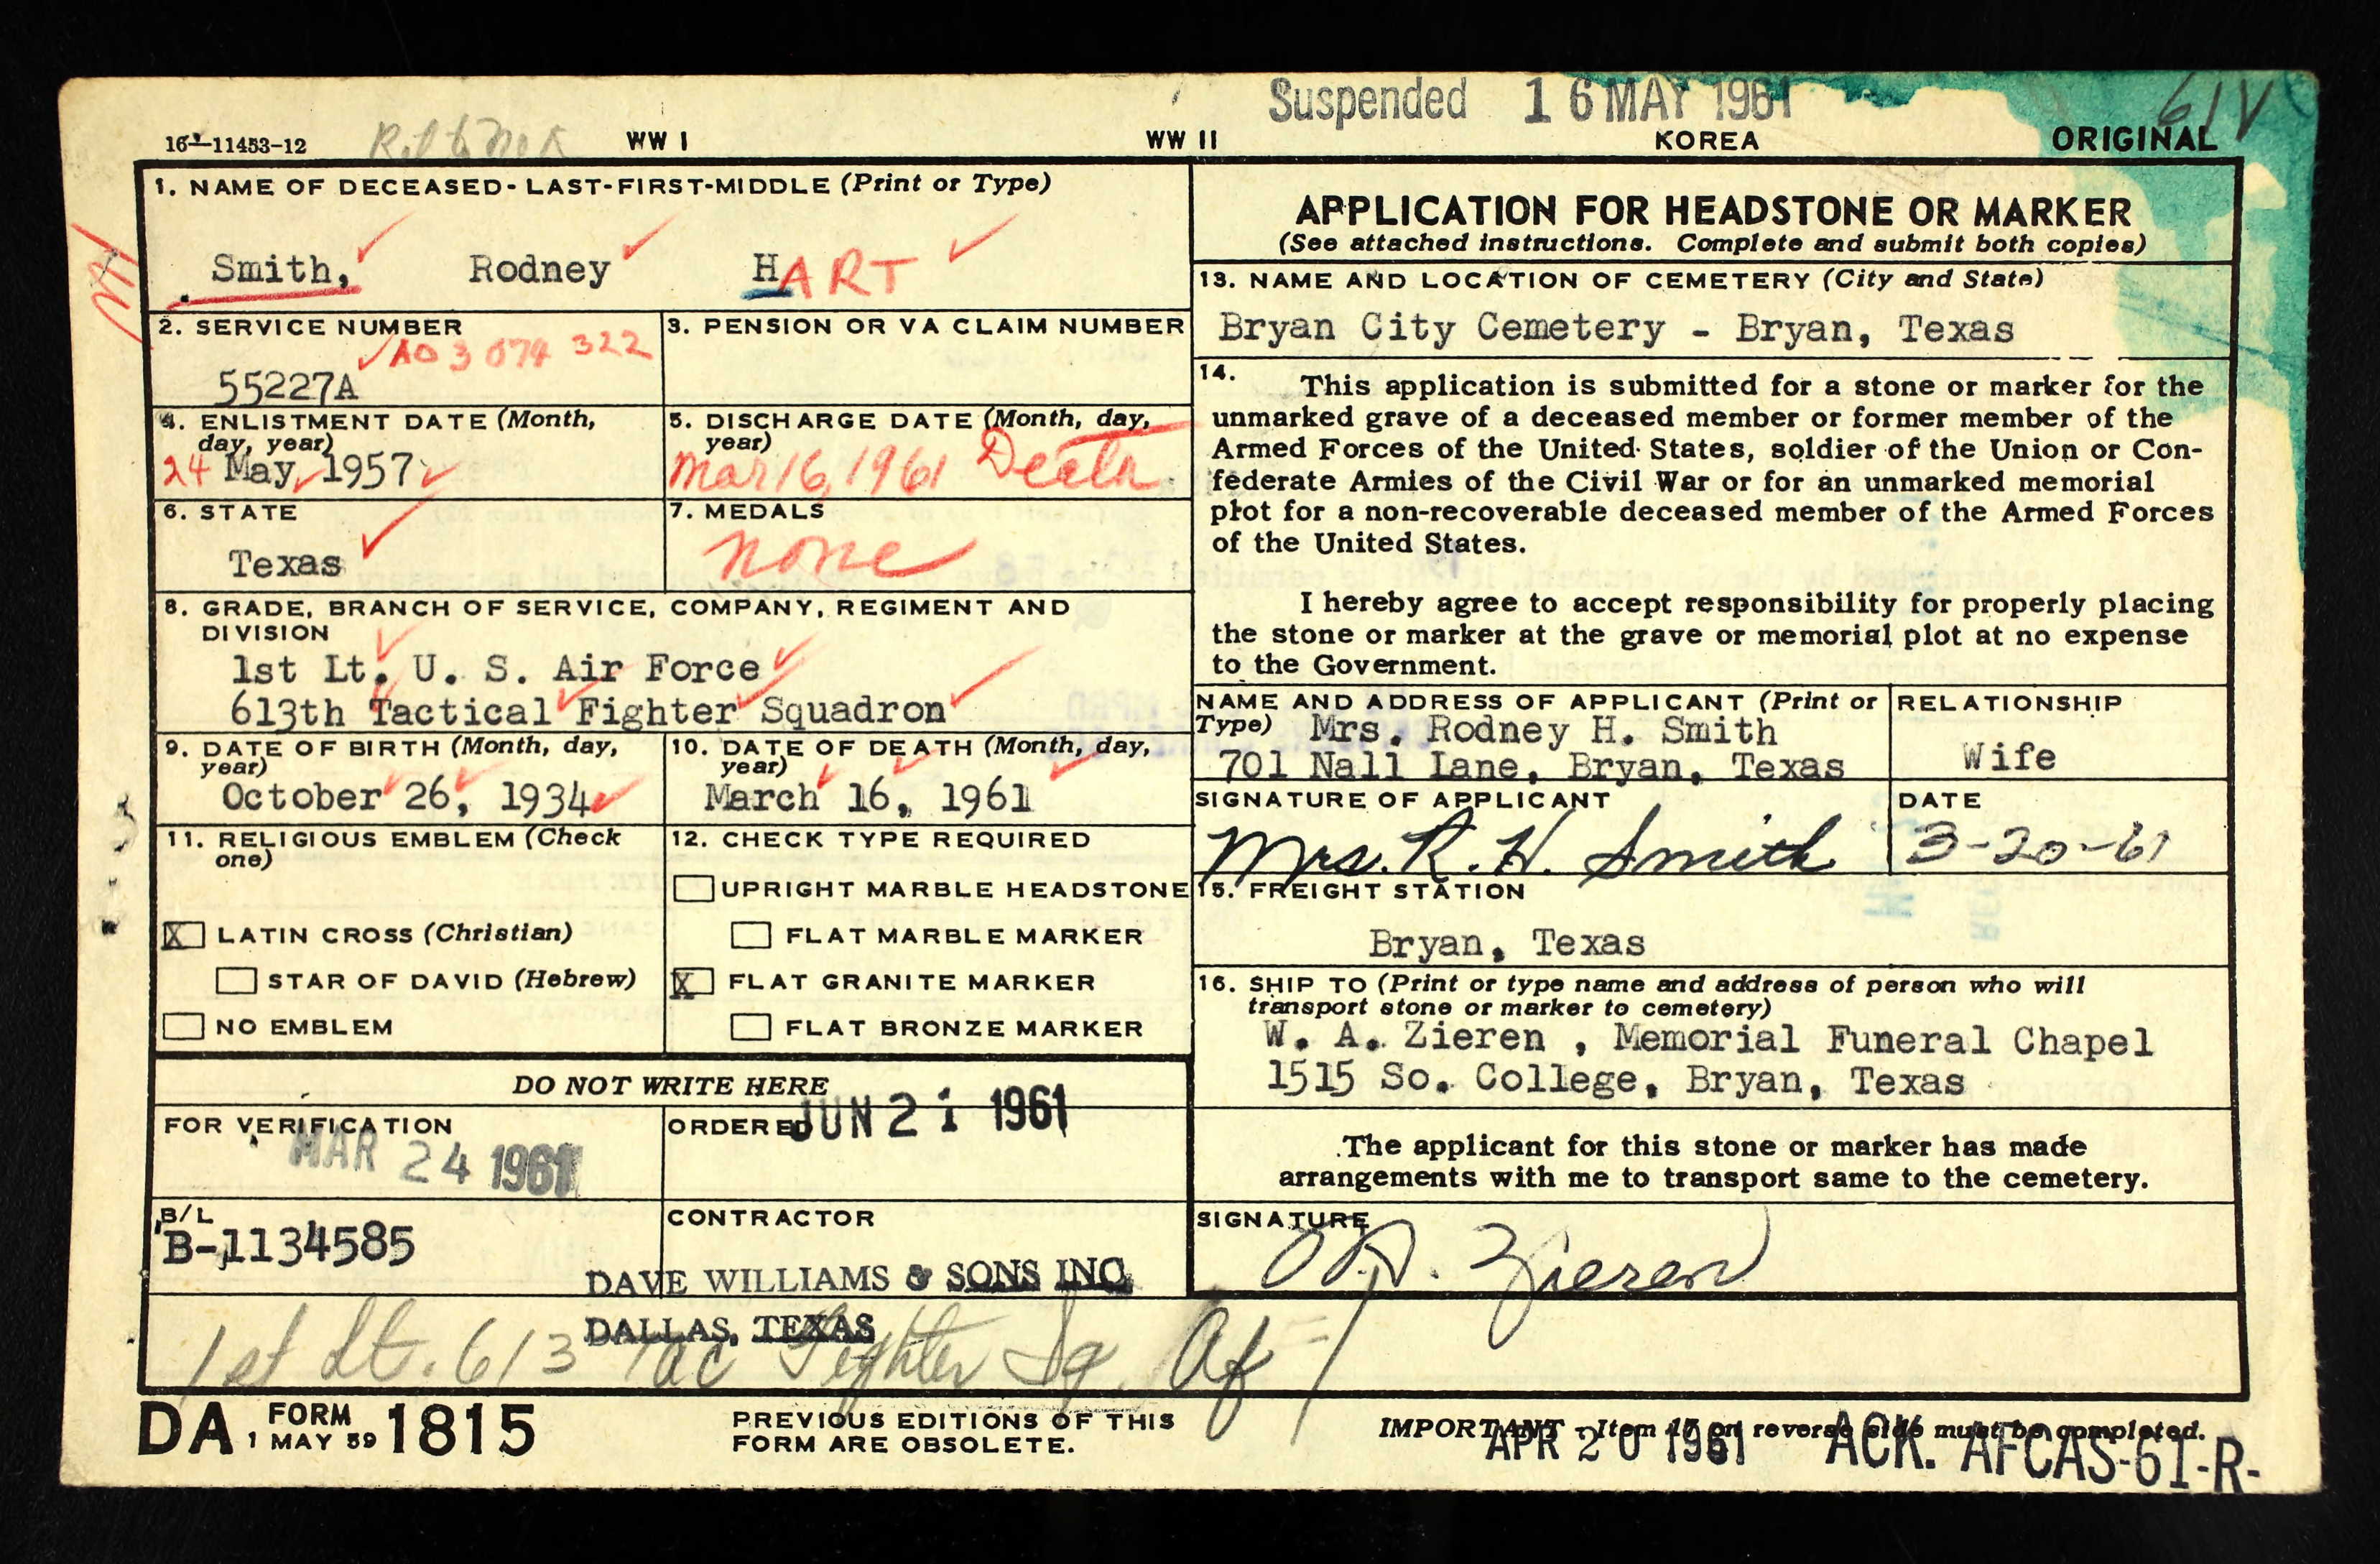 Suspended 16 MAY 1961
61V
16-11453-12
WW I
WW II
KOREA
ORIGINAL
1. NAME OF DECEASED - LAST-FIRST-MIDDLE (Print or Type)
Smith, Rodney HART
2. SERVICE NUMBER
AO 3 074 322
55227A
3. PENSION OR VA CLAIM NUMBER
4. ENLISTMENT DATE (Month, day, year)
24 May, 1957
5. DISCHARGE DATE (Month, day, year)
Mar 16, 1961 Death
6. STATE
Texas
7. MEDALS
none
8. GRADE, BRANCH OF SERVICE, COMPANY, REGIMENT AND
DIVISION
1st Lt. U. S. Air Force
613th Tactical Fighter Squadron
9. DATE OF BIRTH (Month, day, year)
October 26, 1934
10. DATE OF DEATH (Month, day, year)
March 16, 1961
11. RELIGIOUS EMBLEM (Check one)
X LATIN CROSS (Christian)
STAR OF DAVID (Hebrew)
NO EMBLEM
12. CHECK TYPE REQUIRED
UPRIGHT MARBLE HEADSTONE
FLAT MARBLE MARKER
X FLAT GRANITE MARKER
FLAT BRONZE MARKER
DO NOT WRITE HERE
FOR VERIFICATION
MAR 24 1961
ORDERED
JUN 21 1961
B/L
B-1134585
CONTRACTOR
DAVE WILLIAMS & SONS INC
DALLAS, TEXAS
1st Lt. 613 Tac Fighter Sq. AF
APPLICATION FOR HEADSTONE OR MARKER
(See attached instructions. Complete and submit both copies)
13. NAME AND LOCATION OF CEMETERY (City and State)
Bryan City Cemetery - Bryan, Texas
14. This application is submitted for a stone or marker for the
unmarked grave of a deceased member or former member of the
Armed Forces of the United States, soldier of the Union or Con-
federate Armies of the Civil War or for an unmarked memorial
plot for a non-recoverable deceased member of the Armed Forces
of the United States.
I hereby agree to accept responsibility for properly placing
the stone or marker at the grave or memorial plot at no expense
to the Government.
NAME AND ADDRESS OF APPLICANT (Print or
Type) Mrs. Rodney H. Smith
701 Nall Lane, Bryan, Texas
RELATIONSHIP
Wife
SIGNATURE OF APPLICANT
Mrs. R. H. Smith
DATE
3-20-61
15. FREIGHT STATION
Bryan, Texas
16. SHIP TO (Print or type name and address of person who will
transport stone or marker to cemetery)
W. A. Zieren , Memorial Funeral Chapel
1515 So. College, Bryan, Texas
The applicant for this stone or marker has made
arrangements with me to transport same to the cemetery.
SIGNATURE
W. A. Zieren
DA FORM 1 MAY 59 1815
PREVIOUS EDITIONS OF THIS
FORM ARE OBSOLETE.
IMPORTANT - Item 17 on reverse side must be completed.
APR 20 1961 ACK. AFCAS-61-R-